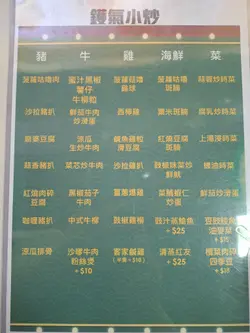 鑊氣小炒
豬 牛 雞 海鮮 菜
菠蘿咕嚕肉
蜜汁黑椒
薯仔
牛柳粒
菠蘿咕嚕
雞球
菠蘿咕嚕
斑腩
蒜蓉炒時菜
沙拉豬扒
鮮茄牛肉
炒滑蛋
西檸雞
粟米斑腩
腐乳炒時菜
麻婆豆腐
涼瓜
生炒牛肉
鹹魚雞粒
滑豆腐
紅燒豆腐
斑腩
上湯浸時菜
蒜香豬扒
菜芯炒牛肉
沙拉雞扒
豉椒
鮮魷
蠔油時菜
紅燒肉碎
豆腐
黑椒茄子
牛肉
薑蔥爆雞
蝦仁
炒蛋
鮮茄炒滑蛋
咖喱豬扒
中式牛柳
豉椒雞柳
豉汁蒸鯇魚
+ $25
豆豉鯪魚
油麥菜
涼瓜排骨
沙嗲牛肉
粉絲煲
+ $10
客家鹹雞
清蒸紅友
+ $25
欖菜肉碎
四季豆